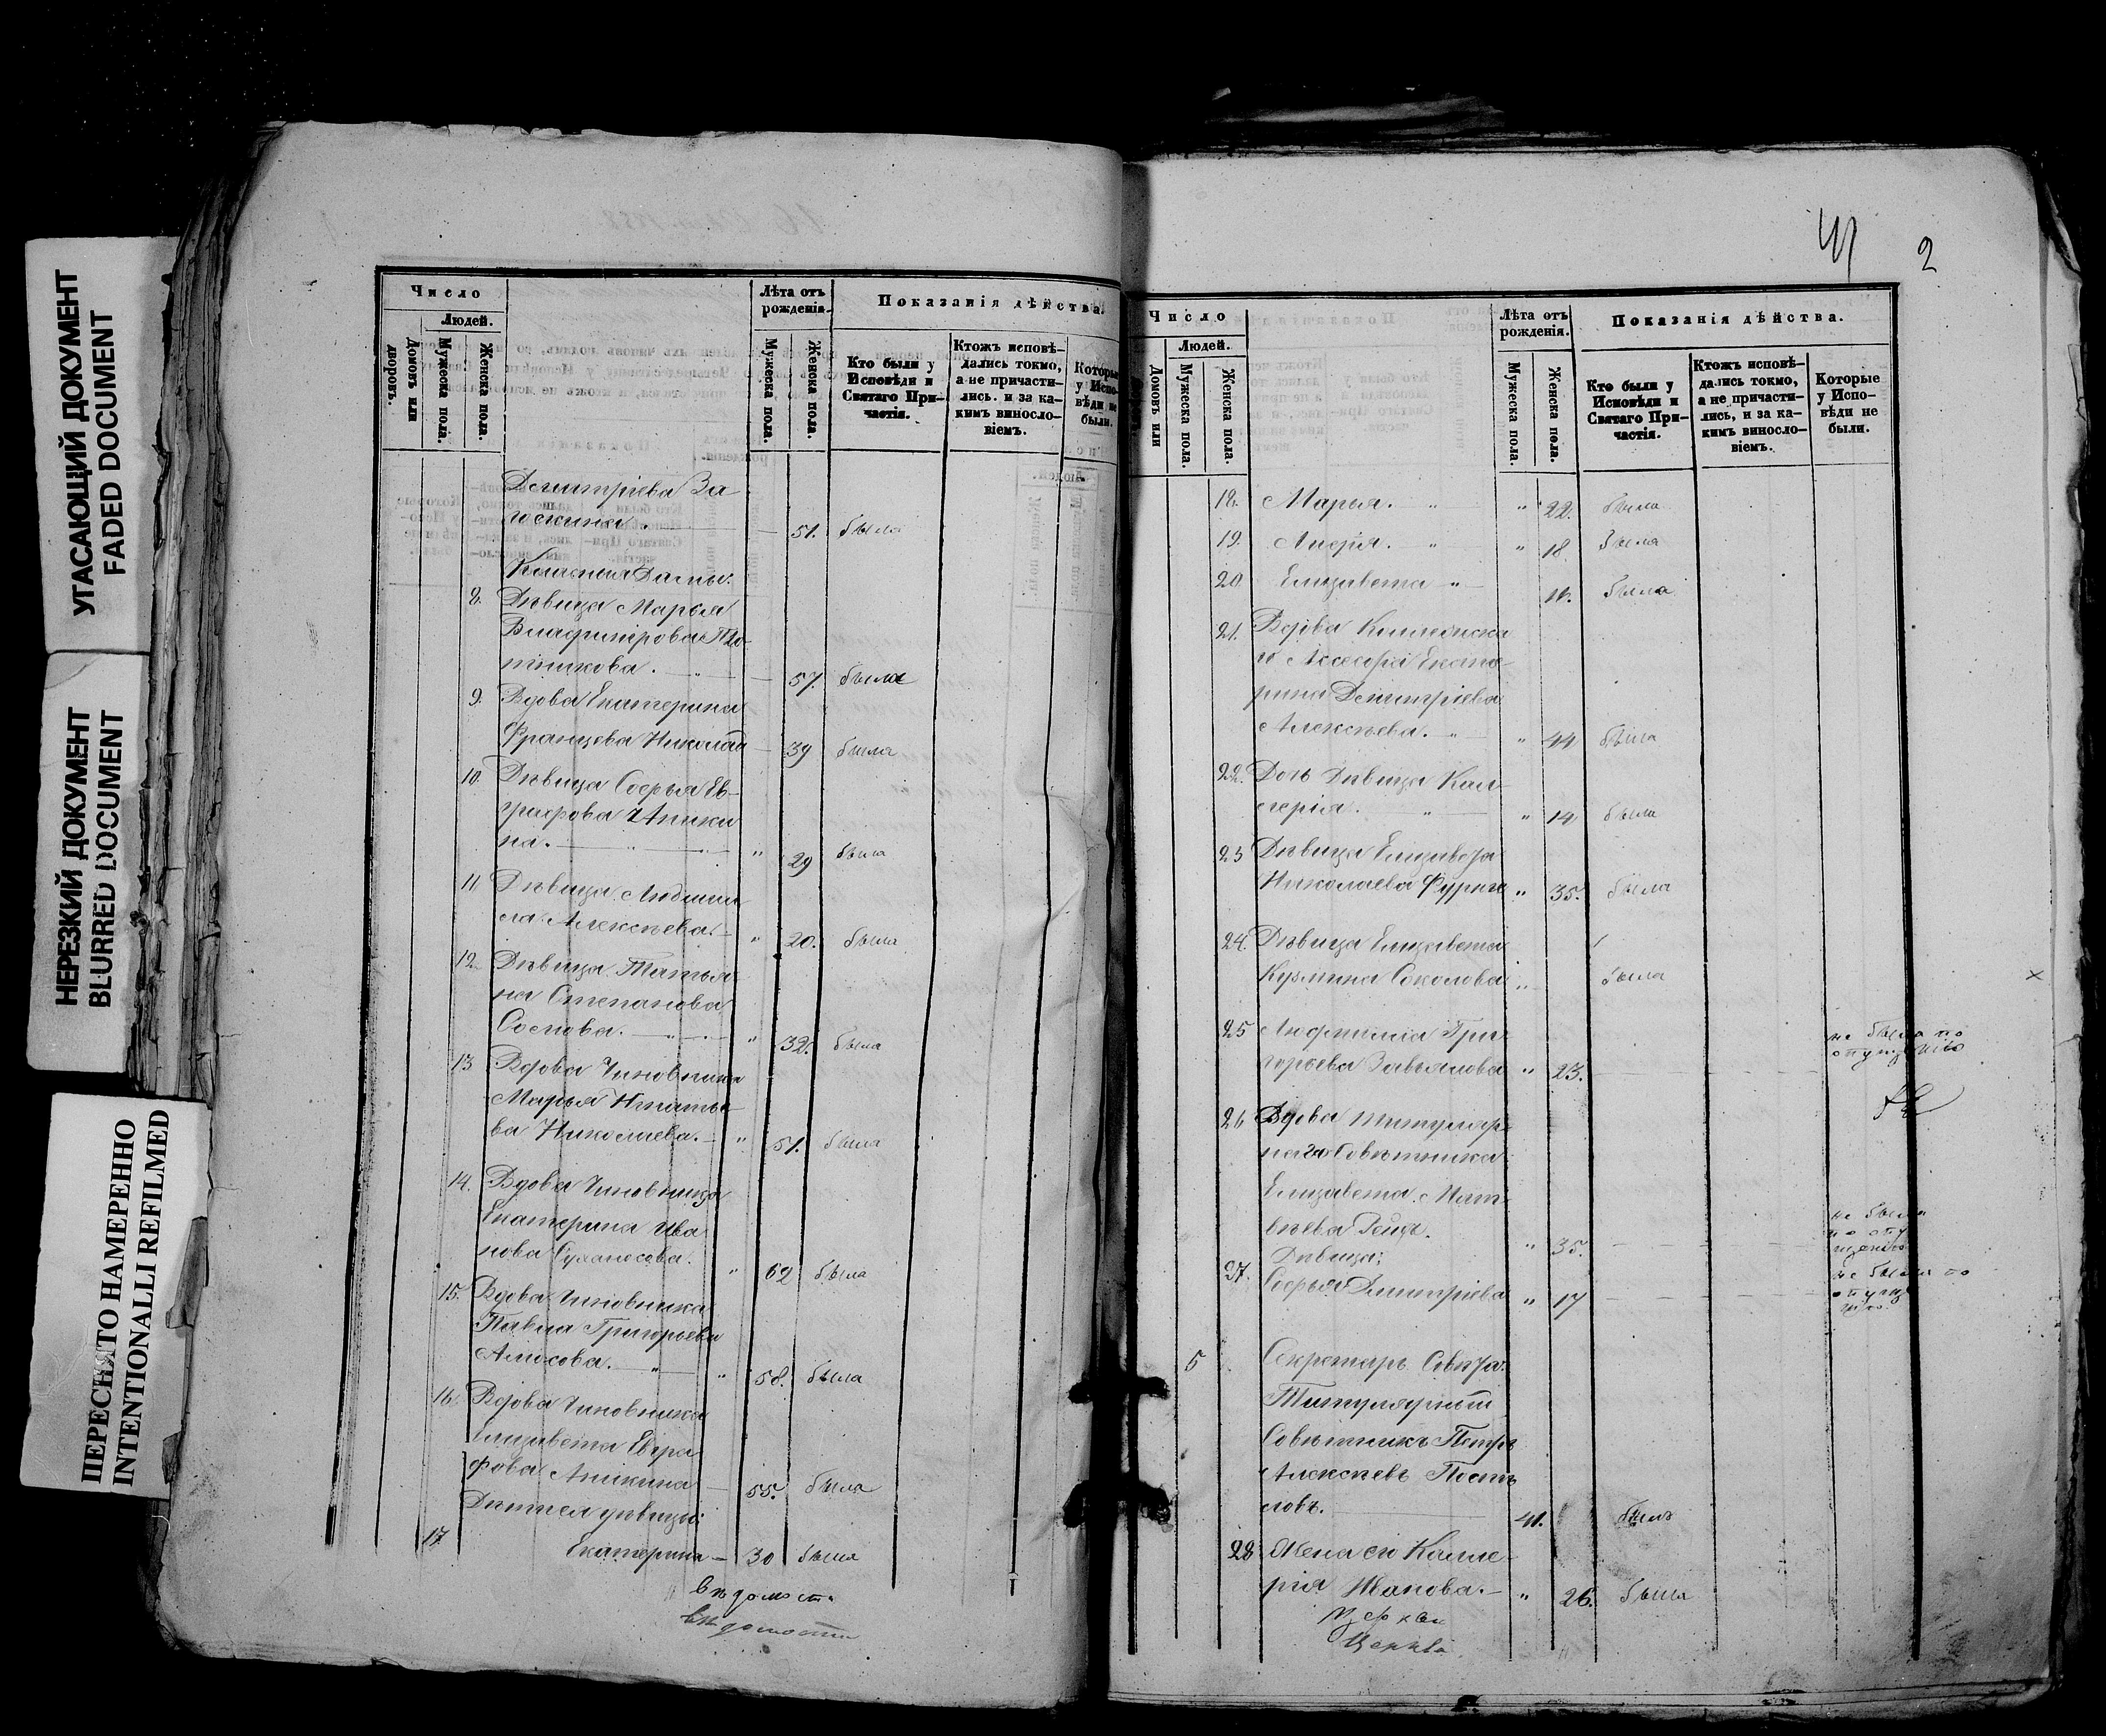 УГАСАЮЩИЙ ДОКУМЕНТ
FADED DOCUMENT
НЕРЕЗКИЙ ДОКУМЕНТ
BLURRED DOCUMENT
ПЕРЕСНЯТО НАМЕРЕННО
INTENTIONALLI REFILMED
Число
Людей.
Домовъ или дворовъ.
Мужеска пола.
Женска пола.
Лѣта отъ рожденія.
Мужеска пола.
Женска пола.
Показанія дѣйства.
Кто были у Исповѣди и Святаго Причастія.
Ктожъ исповѣдались токмо, а не причастились. и за какимъ винословіемъ.
Которые у Исповѣди не были.
Дмитріева За-
51. была
Класныя Дамы:
8. Дѣвица Марья
Владимірова
57. была
9. Вдова Екатерина
Францева Николаи 39 была
10. Дѣвица Софья Ев-
графова Аники
на. " 29 была
11. Дѣвица Людми
ла Алексѣева. " 20. была
12. Дѣвица Татья
на Степанова
" 32. была
13 Вдова Чиновника
Марья Игнатье
ва Николаева. " 51. была
14. Вдова Чиновница
Екатерина Ива
нова " 62 была
15. Вдова Чиновника
Павла Григорьева
Амосова. " 58. была
16. Вдова Чиновника
Елизавета Евгра
фова Аникина 55. была
17. Екатерина 30 была
вѣдомости
вѣдомости
41 2
Число
Людей.
Домовъ или
Мужеска пола.
Женска пола.
Лѣта отъ рожденія.
Мужеска пола.
Женска пола.
Показанія дѣйства.
Кто были у Исповѣди и Святаго Причастія.
Ктожъ исповѣдались токмо, а не причастились, и за какимъ винословіемъ.
Которые у Исповѣди не были.
18. Марья. " " 22. была
19. " " 18 была
20 Елизавета " 16. была
21. Вдова Коллежска
го Асесора Екате
рина Дмитріева
Алексѣева. " " 44 была
22. Дочь Дѣвица Кал-
ерія. " " 14 была
23 Дѣвица Елизавета
Николаева " 35. была
24. Дѣвица Елизавета
Кузмина Соколова " была
25 Людмилла Гри-
горьева Завьялова " 23. не была по
опущенію
26 Вдова титуляр
наго Совѣтника
Елизавета Мат
вѣева " 35. не была
по опу
щенію
Дѣвица:
27. Софья Дмитріева " 17 не была по
опущ
5 Секретарь Совѣта
Титулярный
Совѣтникъ Петръ
Алексѣевъ Поспѣ
ловъ. 41. былъ
28 Жена его Калле-
рія Иванова. " 26. была
Церкви
Церкви